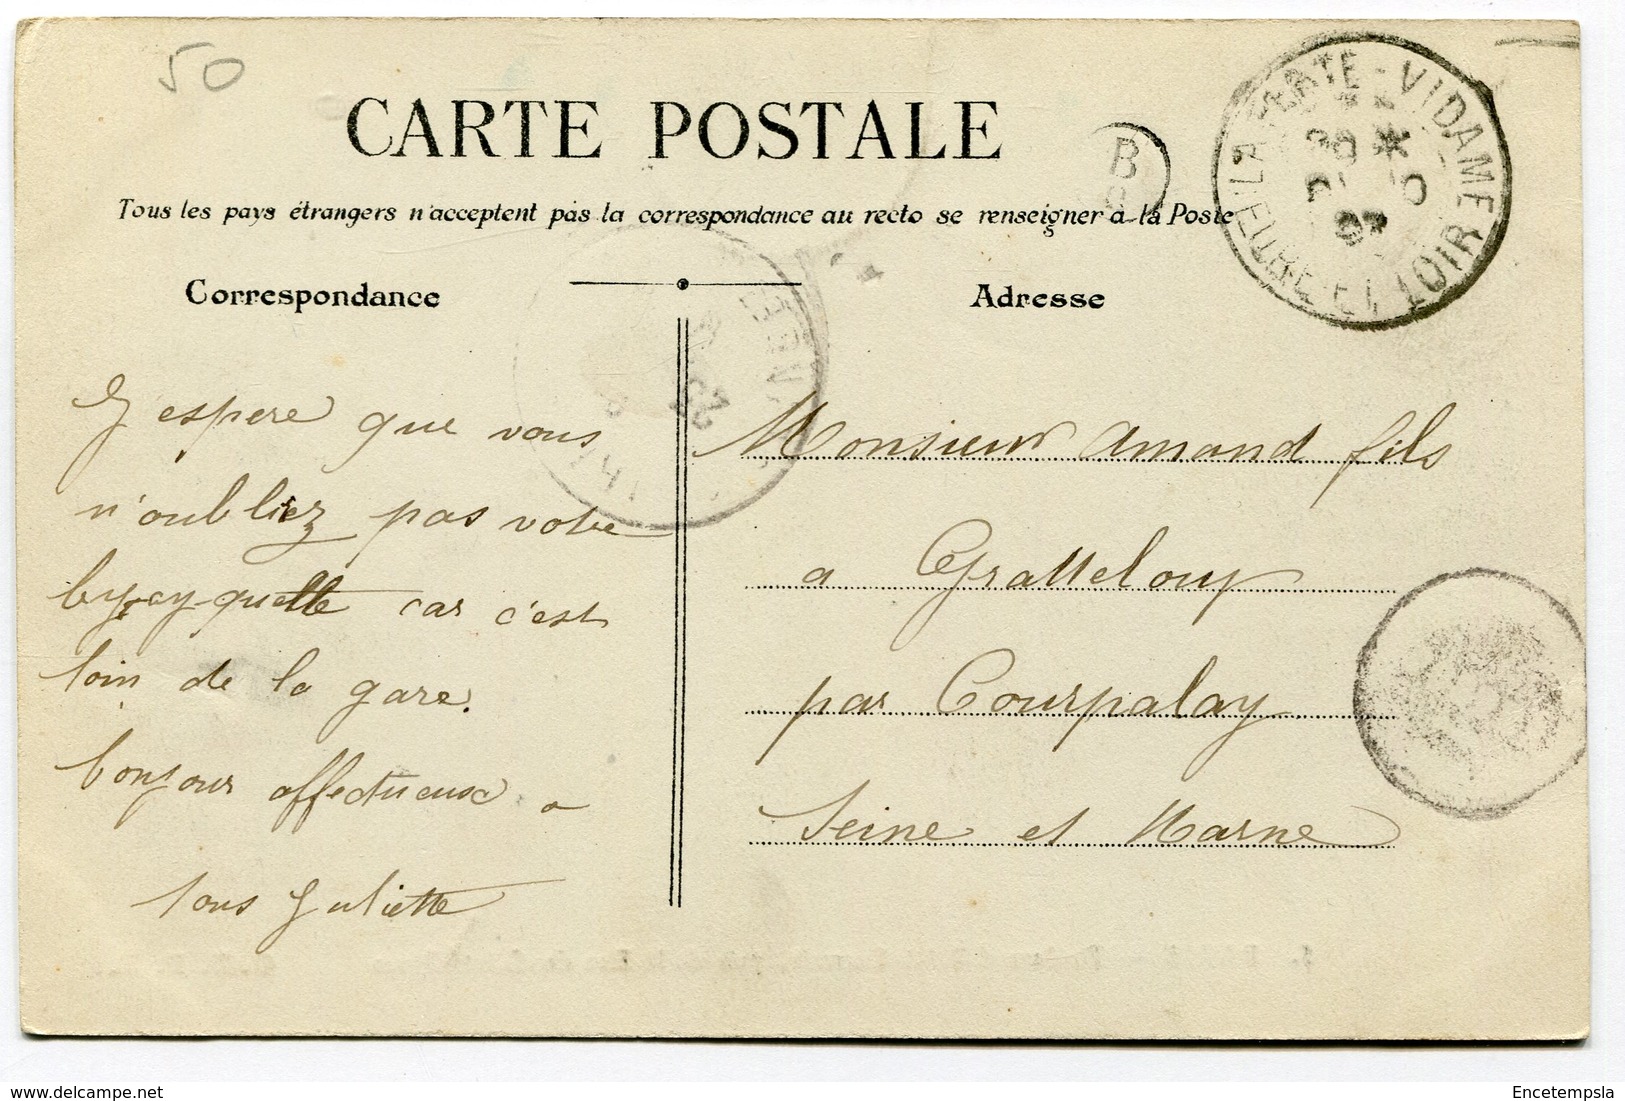 50
CARTE POSTALE
B
LA FERTE-VIDAME
EURE ET LOIR
Tous les pays étrangers n'acceptent pas la correspondance au recto se renseigner à la Poste
Correspondance
Adresse
J espere que vous
n'oubliez pas votre
car c'est
loin de la gare.
bonjour affectueux a
tous Juliette
Monsieur Amand fils
a Gratteloup
par Courpalay
Seine et Marne
Encetempsla